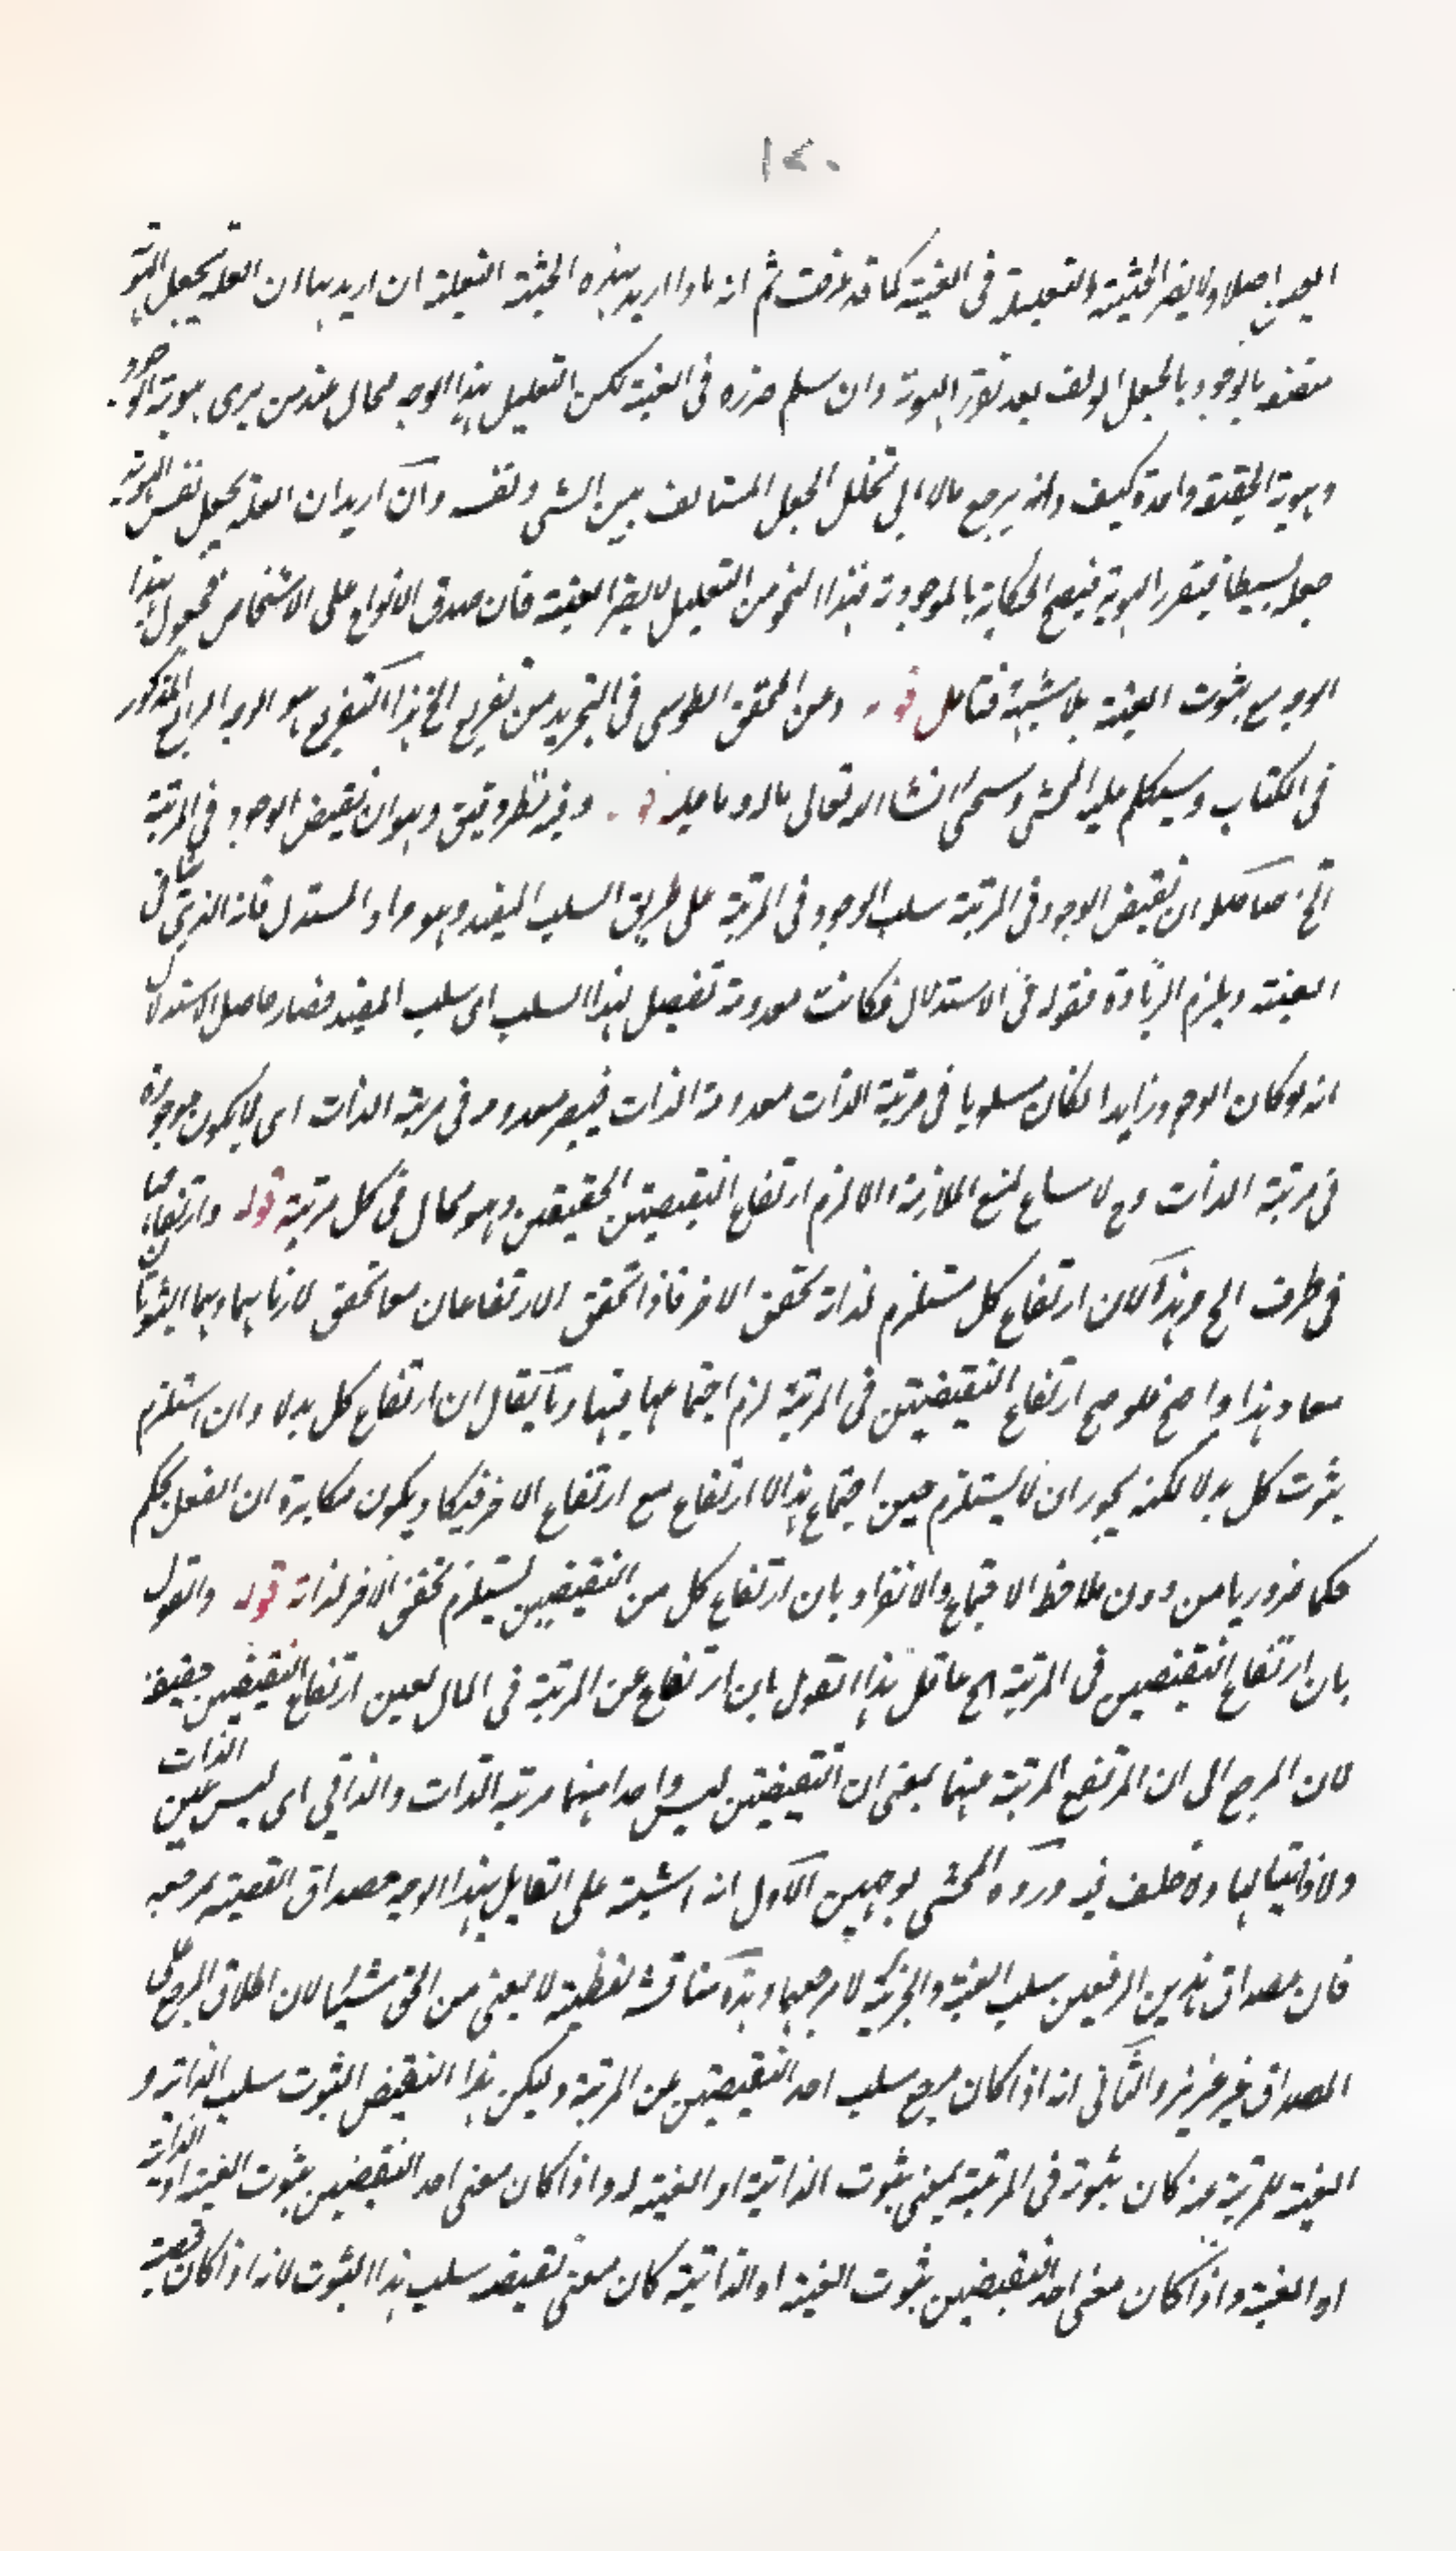 ١٢٠
اصلا ولا يضر الحيثية التعليلية فى العينية كما قد عرفت ثم انه ماذا اريد بهذه الحيثية التعليلية ان اريد بها ان العلة تجعل الهوية
متصفة بالوجود بالجعل المولف بعد تقرر الهوية وان سلم ضرره فى العينية لكن التعليل بهذا الوجه محال عند من يرى هوية الوجود
وهوية الحقيقة واحدة كيف وانه يرجع مآلا الى تخلل الجعل المستانف بين الشى ونفسه وان اريد ان العلة تجعل نفس الهوية
جعلا بسيطا فيتقرر الهوية فيصح الحكاية بالموجودية فهذا النحو من التعليل لا يضر العينية فان صدق الانواع على الاشخاص مجعول بهذا
الوجه مع ثبوت العينية بلا شبهة فتامل قوله ومن المحقق الطوسى فى التجريد من تفريع الخ هذا التفريع هو الوجه الرابع المذكور
فى الكتاب وسيتكلم عليه المحشى وسيجئ انشا الله تعالى ماله وما عليه قوله وفيه نظر دقيق وهو ان نقيض الوجود فى المرتبة
الخ حاصله ان نقيض الوجود فى المرتبة سلب الوجود فى المرتبة على طريق السلب المقيد وهو مراد المستدل فانه الذى ينافى
العينية ويلزم الزيادة فقوله فى الاستدلال فكانت معدومة تفصيل لهذا السلب اى سلب المقيد فصار حاصل الاستدلال
انه لو كان الوجود زايدا لكان مسلوبا فى مرتبة الذات معدومة الذات فيصير معدومه فى مرتبة الذات اى لا يكون موجودة
فى مرتبة الذات وح لا مساغ لمنع الملازمة والا لزم ارتفاع النقيضين الحقيقين وهو محال فى كل مرتبة قوله وارتفاعهما
فى طرف الخ وهذا لان ارتفاع كل مستلزم لذاته تحقق الاخر فاذا تحقق الارتفاعان معا تحقق لازماهما وهما الثبوتان
معا وهذا واضح فلو صح ارتفاع النقيضين فى المرتبة لزم اجتماعهما فيها وما يقال ان ارتفاع كل بدلا وان استلزم
ثبوت كل بدلا لكنه يجوز ان لا يستلزم حين اجتماع هذا الارتفاع مع ارتفاع الاخر ويكون مكابرة ان العقل يحكم
حكما ضروريا من دون ملاحظة الاجتماع والانفراد بان ارتفاع كل من النقيضين يستلزم تحقق الاخر لذاته قوله والقول
بان ارتفاع النقيضين فى المرتبة الخ هذا القول بان ارتفاع عن المرتبة فى المآل لعين ارتفاع النقيضين حقيقة
لان المرجع الى ان المرتفع المرتبة عنهما بمعنى ان النقيضين ليس واحد منهما مرتبة الذات والذاتى اى ليس عين الذات
ولا ذاتيا لها ولا خلف فيه ورده المحشى بوجهين الاول انه اشتبه على القايل بهذا الوجه مصداق القضية بمرجعه
فان مصداق هذين الرفعين سلب العينية والجزئية لا مرجعها وهذه مناقشة لفظية لا يعنى من الحق شيئا لان اطلاق المرجع على
المصداق غير عزيز والثانى انه اذا كان مرجع سلب احد النقيضين عن المرتبة وليكن هذا النقيض الثبوت سلب الذاتية و
العينية للمرتبة عنه كان ثبوته فى المرتبة بمعنى ثبوت الذاتية او العينية له واذا كان معنى احد النقيضين ثبوت العينية او الذاتية
او العينية واذا كان معنى احد النقيضين ثبوت العينية او الذاتية كان معنى نقيضه سلب هذا الثبوت لانه اذا كان قضية